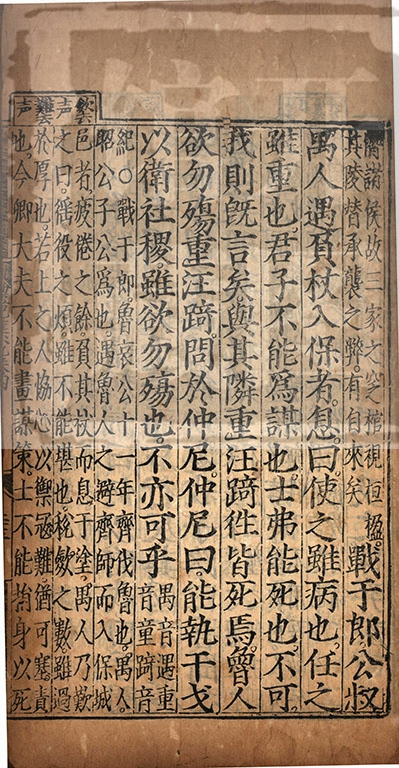 諸侯故三家之窆棺視桓楹
其陵替承襲之弊有自來矣
戰于郎公叔
禺人遇負杖入保者息曰使之雖病也任之
雖重也君子不能爲謀也士弗能死也不可
我則既言矣與其隣重汪踦徃皆死焉魯人
欲勿殤重汪踦問於仲尼仲尼曰能執干戈
以衛社稷雖欲勿殤也不亦可乎
禺音遇重
音童踦音
紀○戰于郎魯哀公十一年齊伐魯也禺人
昭公子公爲也遇魯人之避齊師而入保城
歛去
声
邑者疲倦之餘負其杖而息于塗禺人乃歎
之曰徭役之煩雖不能堪也稅歛之數雖過
難去
声
於厚也若上之人恊心以禦冦難猶可塞責
也今卿大夫不能畫謀策士不能捐身以死